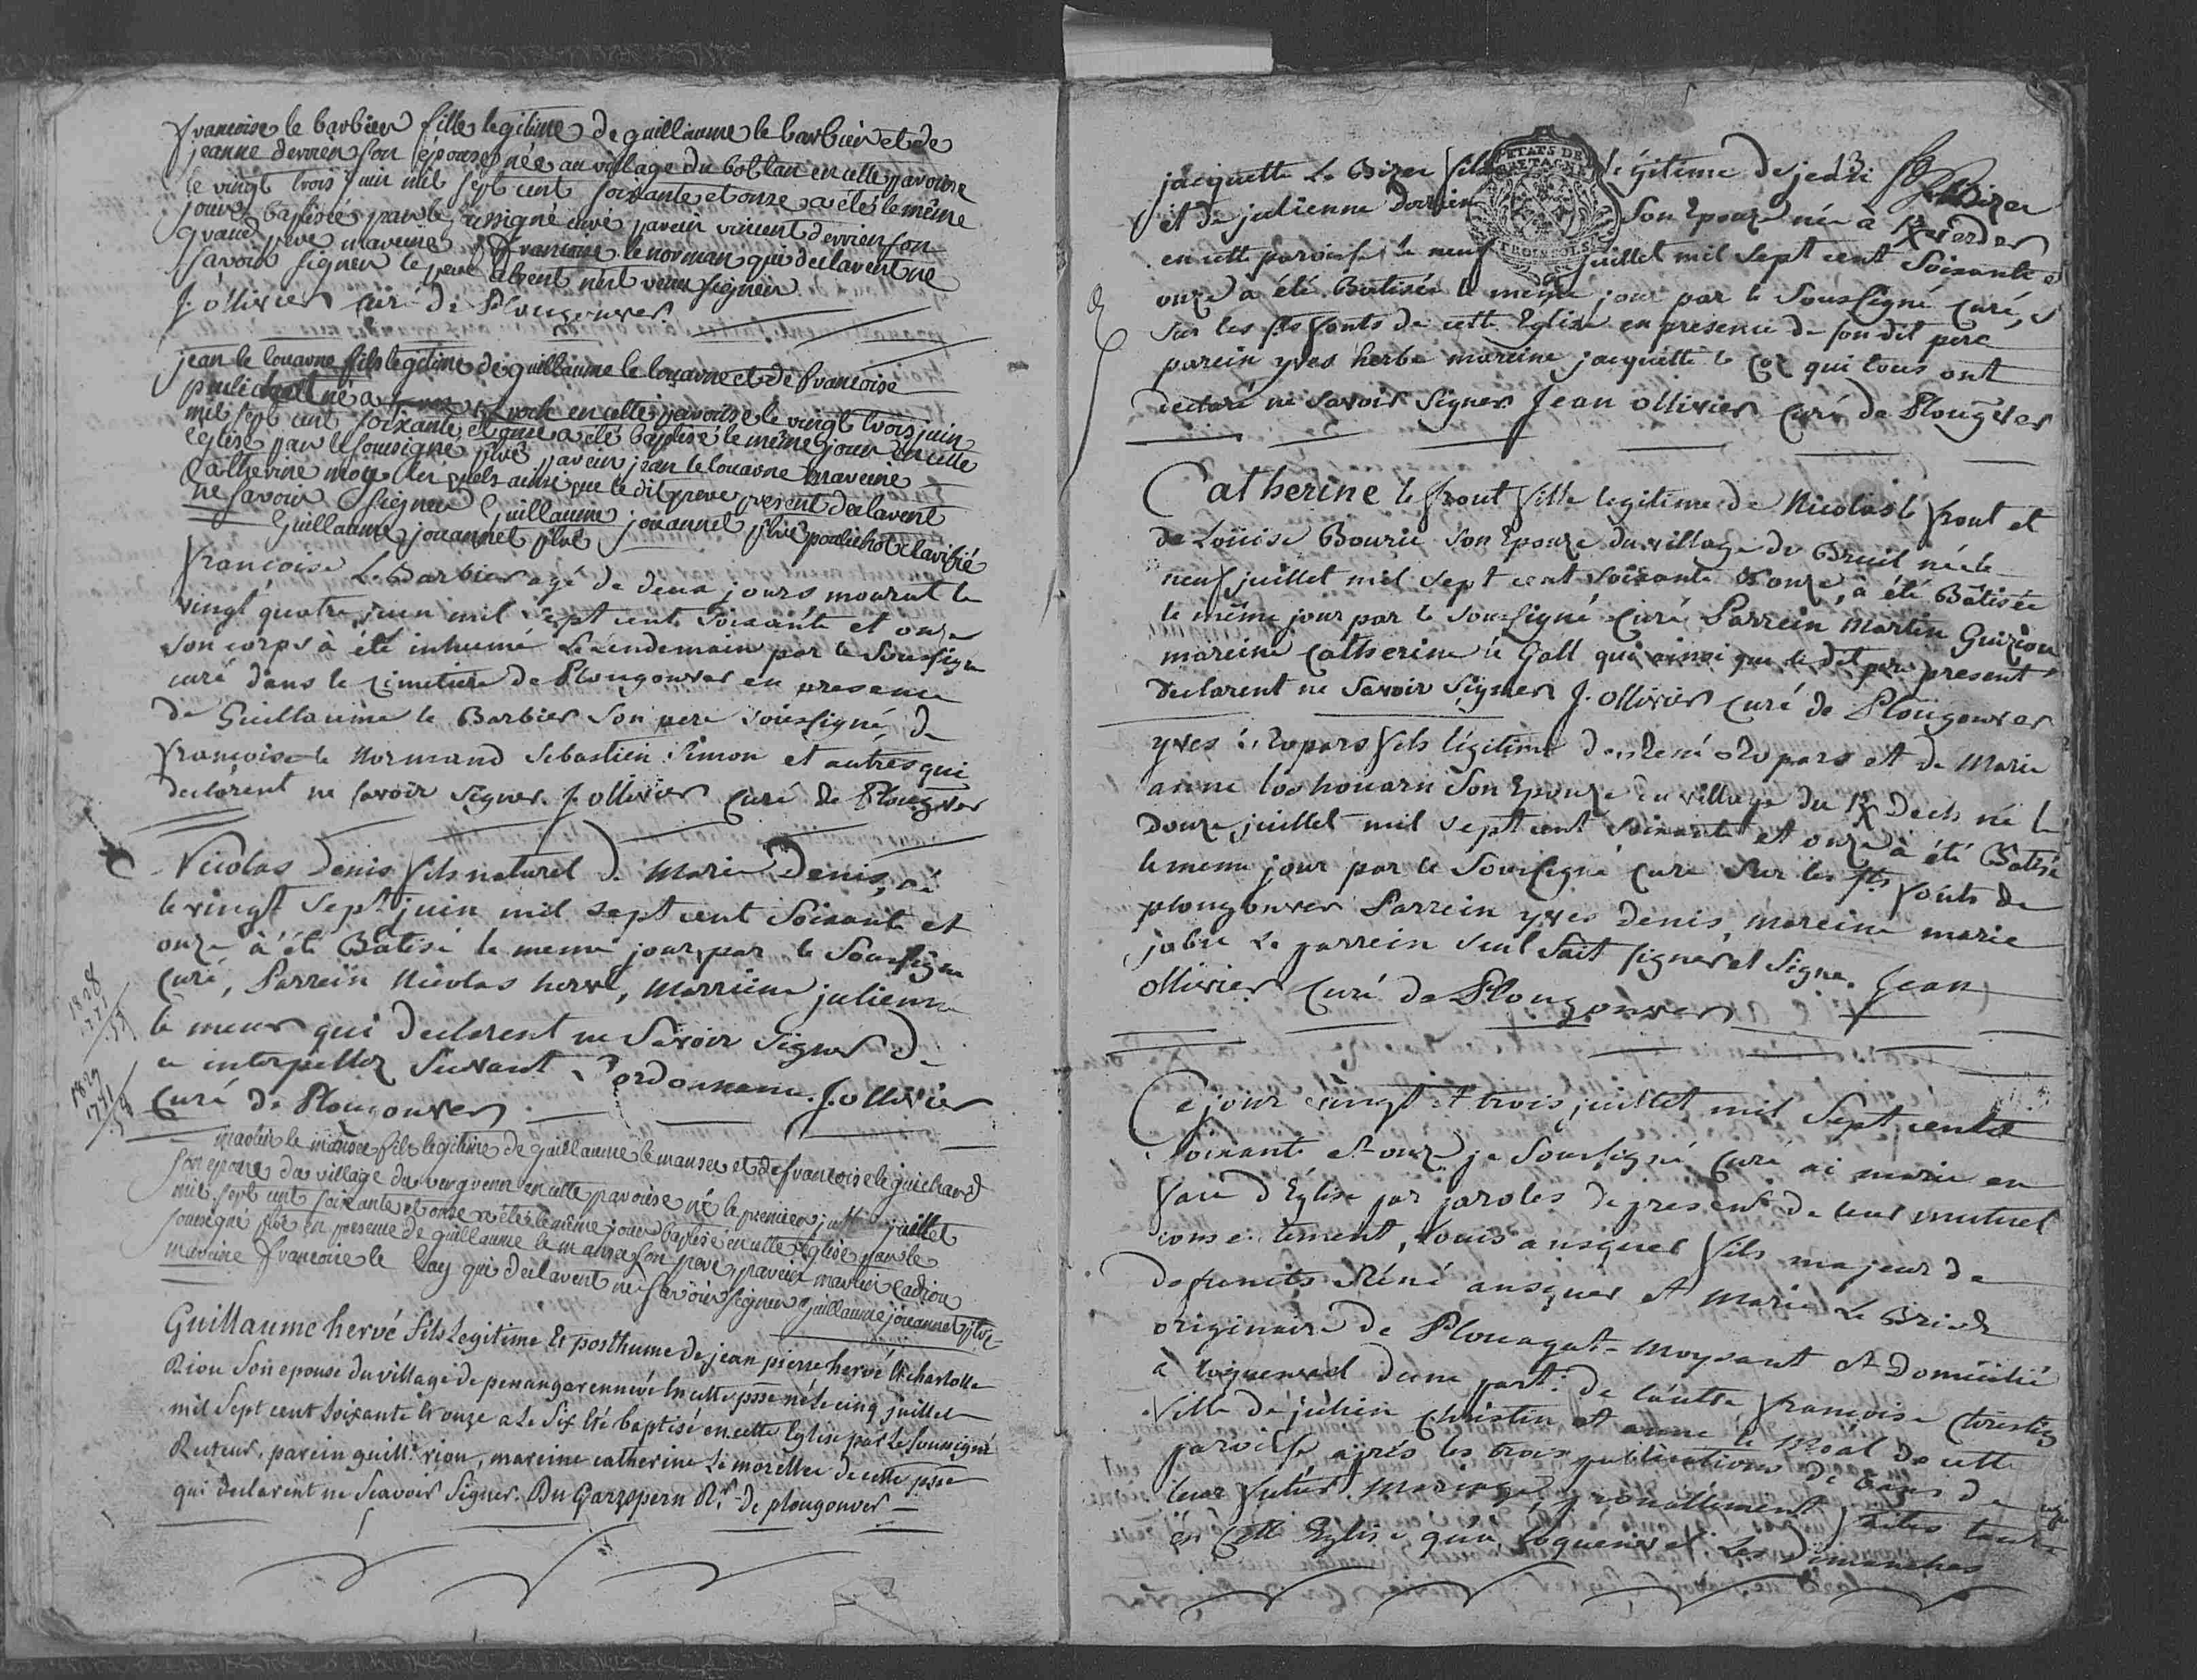 francoise le barbier fille legitime de guillaume le barbier et de
jeanne derrien son epouse née au village du botlan en cette paroisse
le vingt trois juin mil sept cent soixante et onze a été le même
jour baptisée par le soussigné curé parein vincent derrien son
grand pere mareine francoise le norman qui declarent ne
savoir signer le pere absent
J. ollivier curé de Plougonver
jean le louarne fils legitime de guillaume le louarne et de francoise
né a en cette paroisse le vingt trois juin
mil sept cent soixante et onze a été baptisé le même jour en cette
eglise par le sousigné ptre parein jean le louarne mareine
Catherine les quels ainsi que le dit pere present declarent
ne savoir signer Guillaume jouannet ptre
Guillaume jouannet ptre
francoise Le Barbier agé de deux jours mourut le
vingt quatre juin mil sept cent soixante et onze
son corps à été inhumé Le lendemain par le Sousigné
curé dans le cimetiere de Plougonver en presence
de Guillaume le Barbier Son pere soussigné, de
francoise le Normand Sebastien Simon et autres qui
declarent ne savoir signer. J. ollivier Curé de Plougver
Nicolas Denis fils naturel de Marie Denis, né
le vingt Sept juin mil sept cent Soixante et
onze à été Batisé le meme jour par le Sousigné
Curé, Parrein Nicolas hervé, Marreine julienne
le meur qui declarent ne Savoir Signer de
ce interpellez Suivant L'ordonnance. J. ollivier
Curé de Plougonver
1828
1771
57
1829
1771
58
martin le manser fils legitime de guillaume le manser et de francoise le guichard
son epouse du village du en cette paroisse né le premier juillet
mil sept cent soixante et onze a été le même jour baptisé en cette eglise par le
sousigné ptre en presence de guillaume le manser son pere, parein martin cadiou
mareine francoise le qui declarent ne savoir signer guillaume jouannet ptre
Guillaume hervé fils Legitime Et posthume de jean pierre hervé Et charlotte
Riou Son epouse du village de En cette psse né Le cinq juillet
mil Sept cent Soixante Et onze a Le Six Eté baptisé en cette Eglise par Le Soussigné
Recteur, parein guill. riou, mareine catherine Le morellec de cette psse
qui declarent ne Scavoir Signer. Du Garzspern Rr de plougonver
ETATS DE
BRETAGNE
jacquette Le Bizer fille légitime de jean Le Bizer
13
et de julienne Derrien Son Epouze née a
en cette paroisse le neuf juillet mil sept cent Soixante et
onze a été Batisée le même jour par le Soussigné Curé,
sur les fts fonts de cette Eglise en presence de son dit pere
parein yves herbe mareine jacquette le Coz qui tous ont
déclaré ne Savoir Signer Jean ollivier Curé de Plougver
Catherine le frout fille legitime de Nicolas le frout et
de Louise Bourie Son Epouze du village du Breuil née le
neuf juillet mil sept cent soixante et onze, à été Batisée
le même jour par le Soussigné Curé Parrein Martin
mareine Catherine le Gall qui ainsi que le dit pere present
declarent ne Savoir Signer J. ollivier Curé de Plougonver
yves Ropars fils légitime de René Ropars et de Marie
anne Son Epouze du village du né le
douze juillet mil sept cent soixante et onze à été Batisé
le meme jour par le Soussigné Curé Sur les fts fonts de
plougonver Parrein yves Denis, Mareine marie
Le parrein seul Sait signer et Signe. Jean
ollivier Curé de Plougonver
Ce jour vingt et trois juillet mil Sept cent
Soixante et onze je Soussigné Curé ai marié en
face d'Eglise par paroles de present de leur mutuel
consentement, Louis ansquer fils majeur de
defuncts Réné ansquer et Marie Le
originaire de Plouagat-Moysant et Domicilié
à Loguenvel d'une part: de l'autre francoise Christien
fille de julien Christien et anne le Moal de cette
paroisse après les trois publications de bans de
leur futur Mariage faites tant
en cette Eglise qu'a Loguenvel Les Dimanches